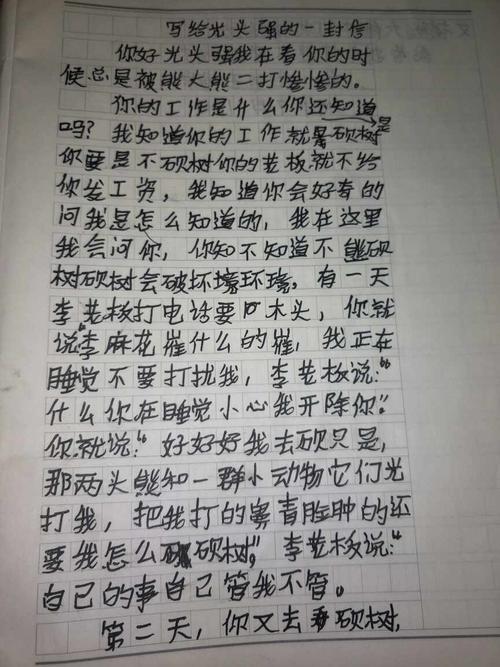 写给光头强的一封信
你好光头强我在看你的时
候总是被熊大熊二打惨惨的。
你的工作是什么你还知道
吗?我知道你的工作就是砍树
你要是不砍树你的老板就不给
你发工资,我知道你会好奇的
问我是怎么知道的,我在这里
我会问你,你知不知道不能砍
树砍树会破坏环境,有一天
李老板打电话要木头,你就
说"李麻花催什么的催,我正在
睡觉不要打扰我,李老板说:"
什么你在睡觉小心我开除你"。
你就说:"好好好我去砍只是,
那两头熊和一群小动物它们光
打我,把我打的鼻青脸肿的还
要我怎么砍树"。李老板说:"
自己的事自己管我不管。
第二天,你又去砍树,